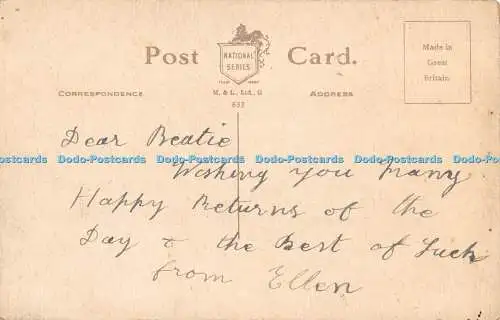 Post Card.
NATIONAL
SERIES
TRADE MARK
M. & L., Ltd., G
633
CORRESPONDENCE
ADDRESS
Made in
Great
Britain
Dear Beatie
Dodo-Postcards Dodo-Postcards Dodo-Postcards Dodo-Postcards Dodo-Postcards
Wishing you Many
Happy Returns of the
Day & the Best of Luck
from Ellen